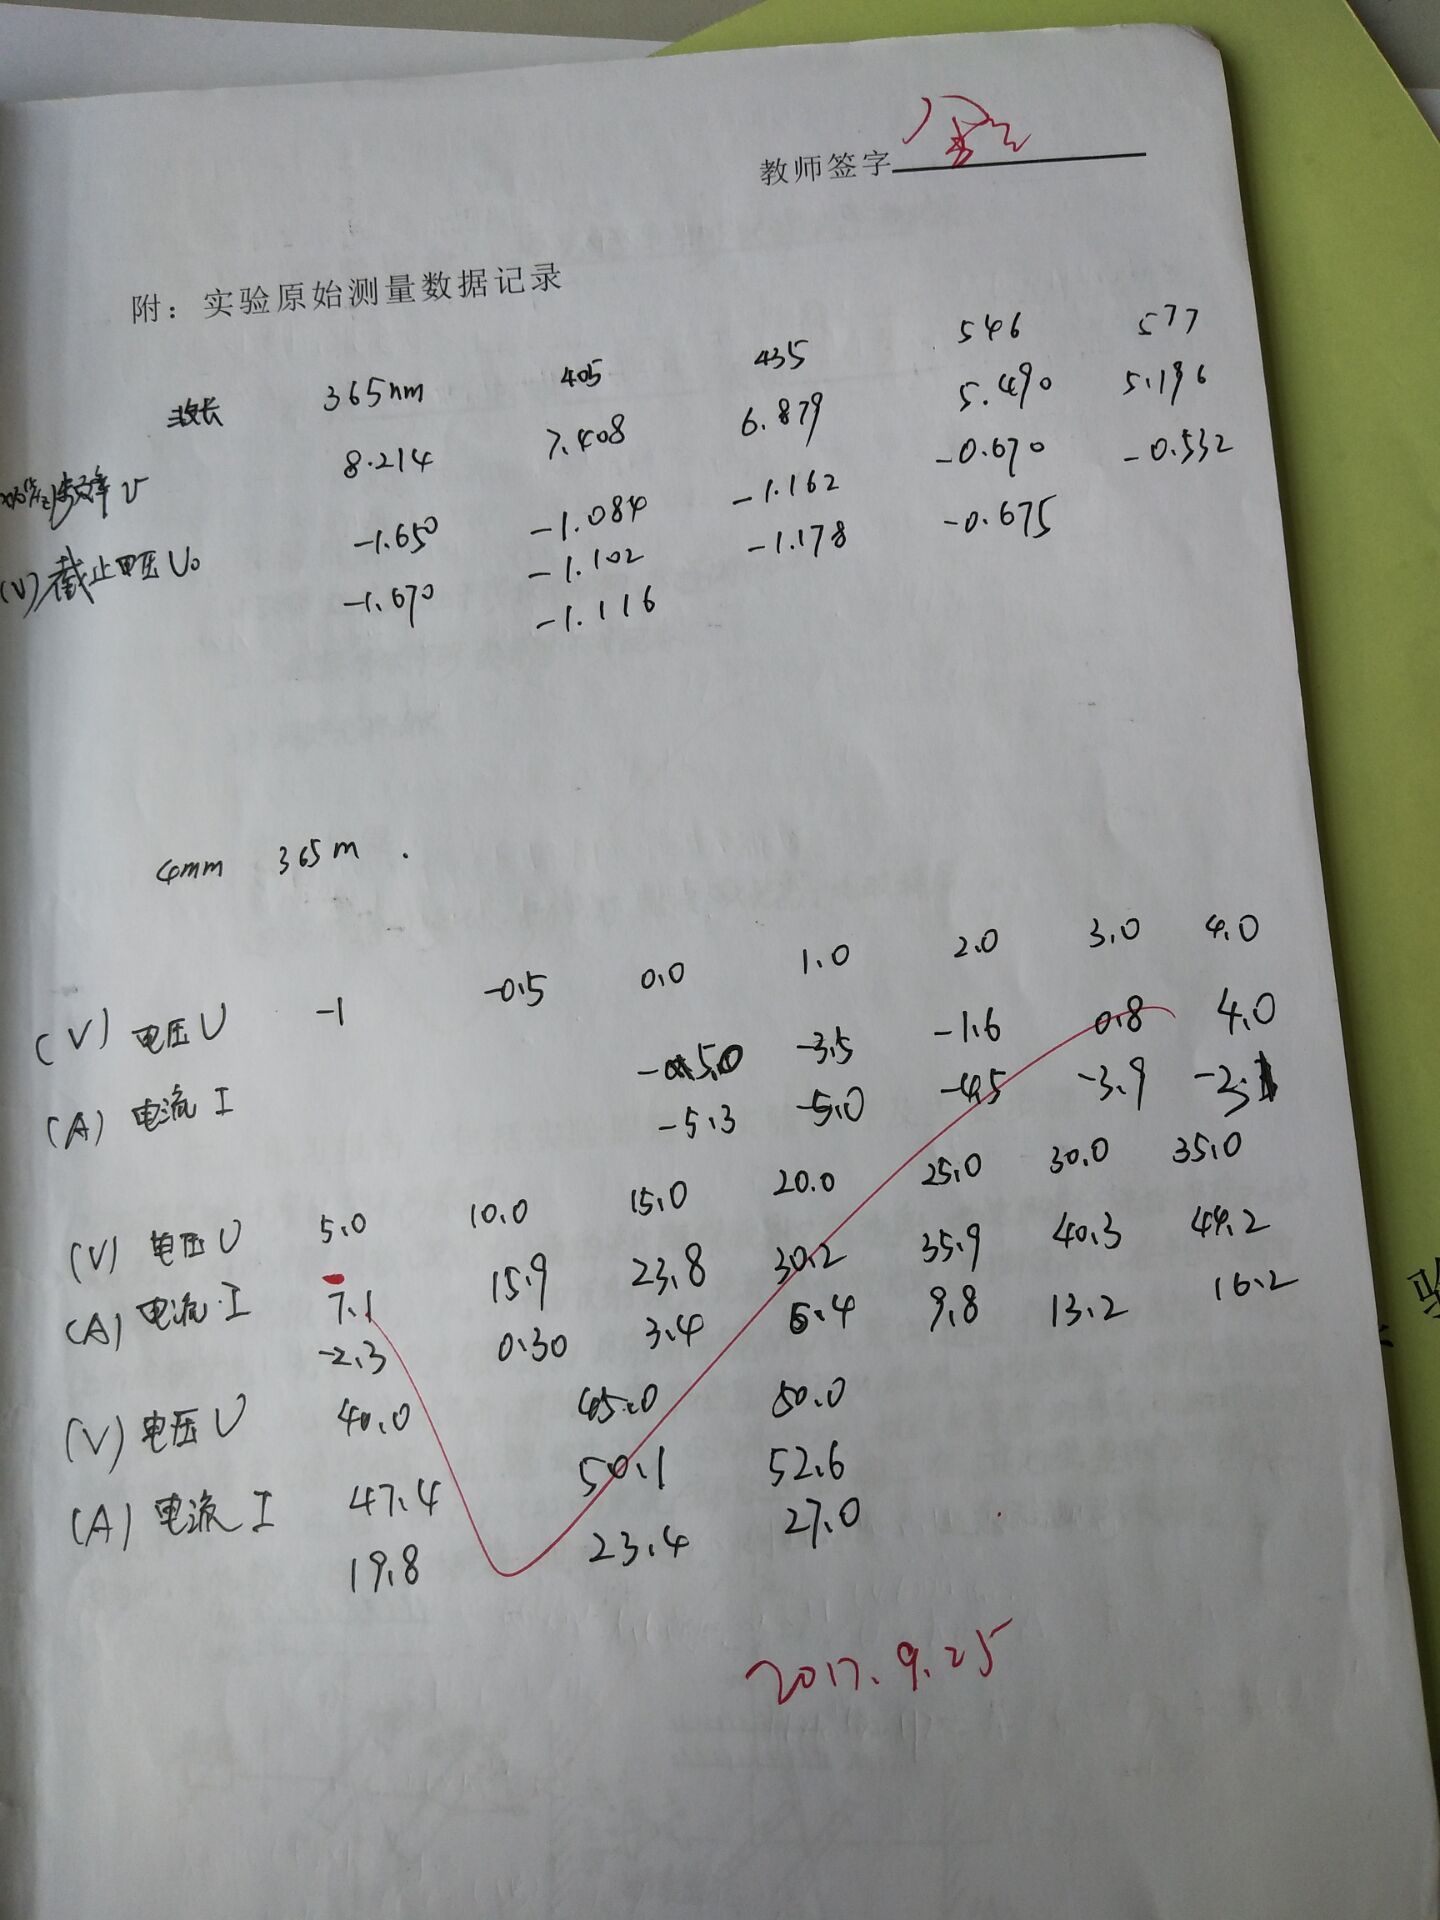 教师签字
附：实验原始测量数据记录
波长 365nm 405 435 546 577
频率υ 8.214 7.408 6.879 5.490 5.196
(V)截止电压U₀ -1.650 -1.084 -1.162 -0.670 -0.532
-1.670 -1.102 -1.178 -0.675
-1.116
4mm 365m .
(V) 电压U -1 -0.5 0.0 1.0 2.0 3.0 4.0
(A) 电流I -5.0 -3.5 -1.6 0.8 4.0
-5.3 -5.0 -4.5 -3.9
(V) 电压U 5.0 10.0 15.0 20.0 25.0 30.0 35.0
(A) 电流I 7.1 15.9 23.8 30.2 35.9 40.3 44.2
-2.3 0.30 3.4 6.4 9.8 13.2 16.2
(V) 电压U 40.0 45.0 50.0
(A) 电流I 47.4 50.1 52.6
19.8 23.4 27.0
2017.9.25
验